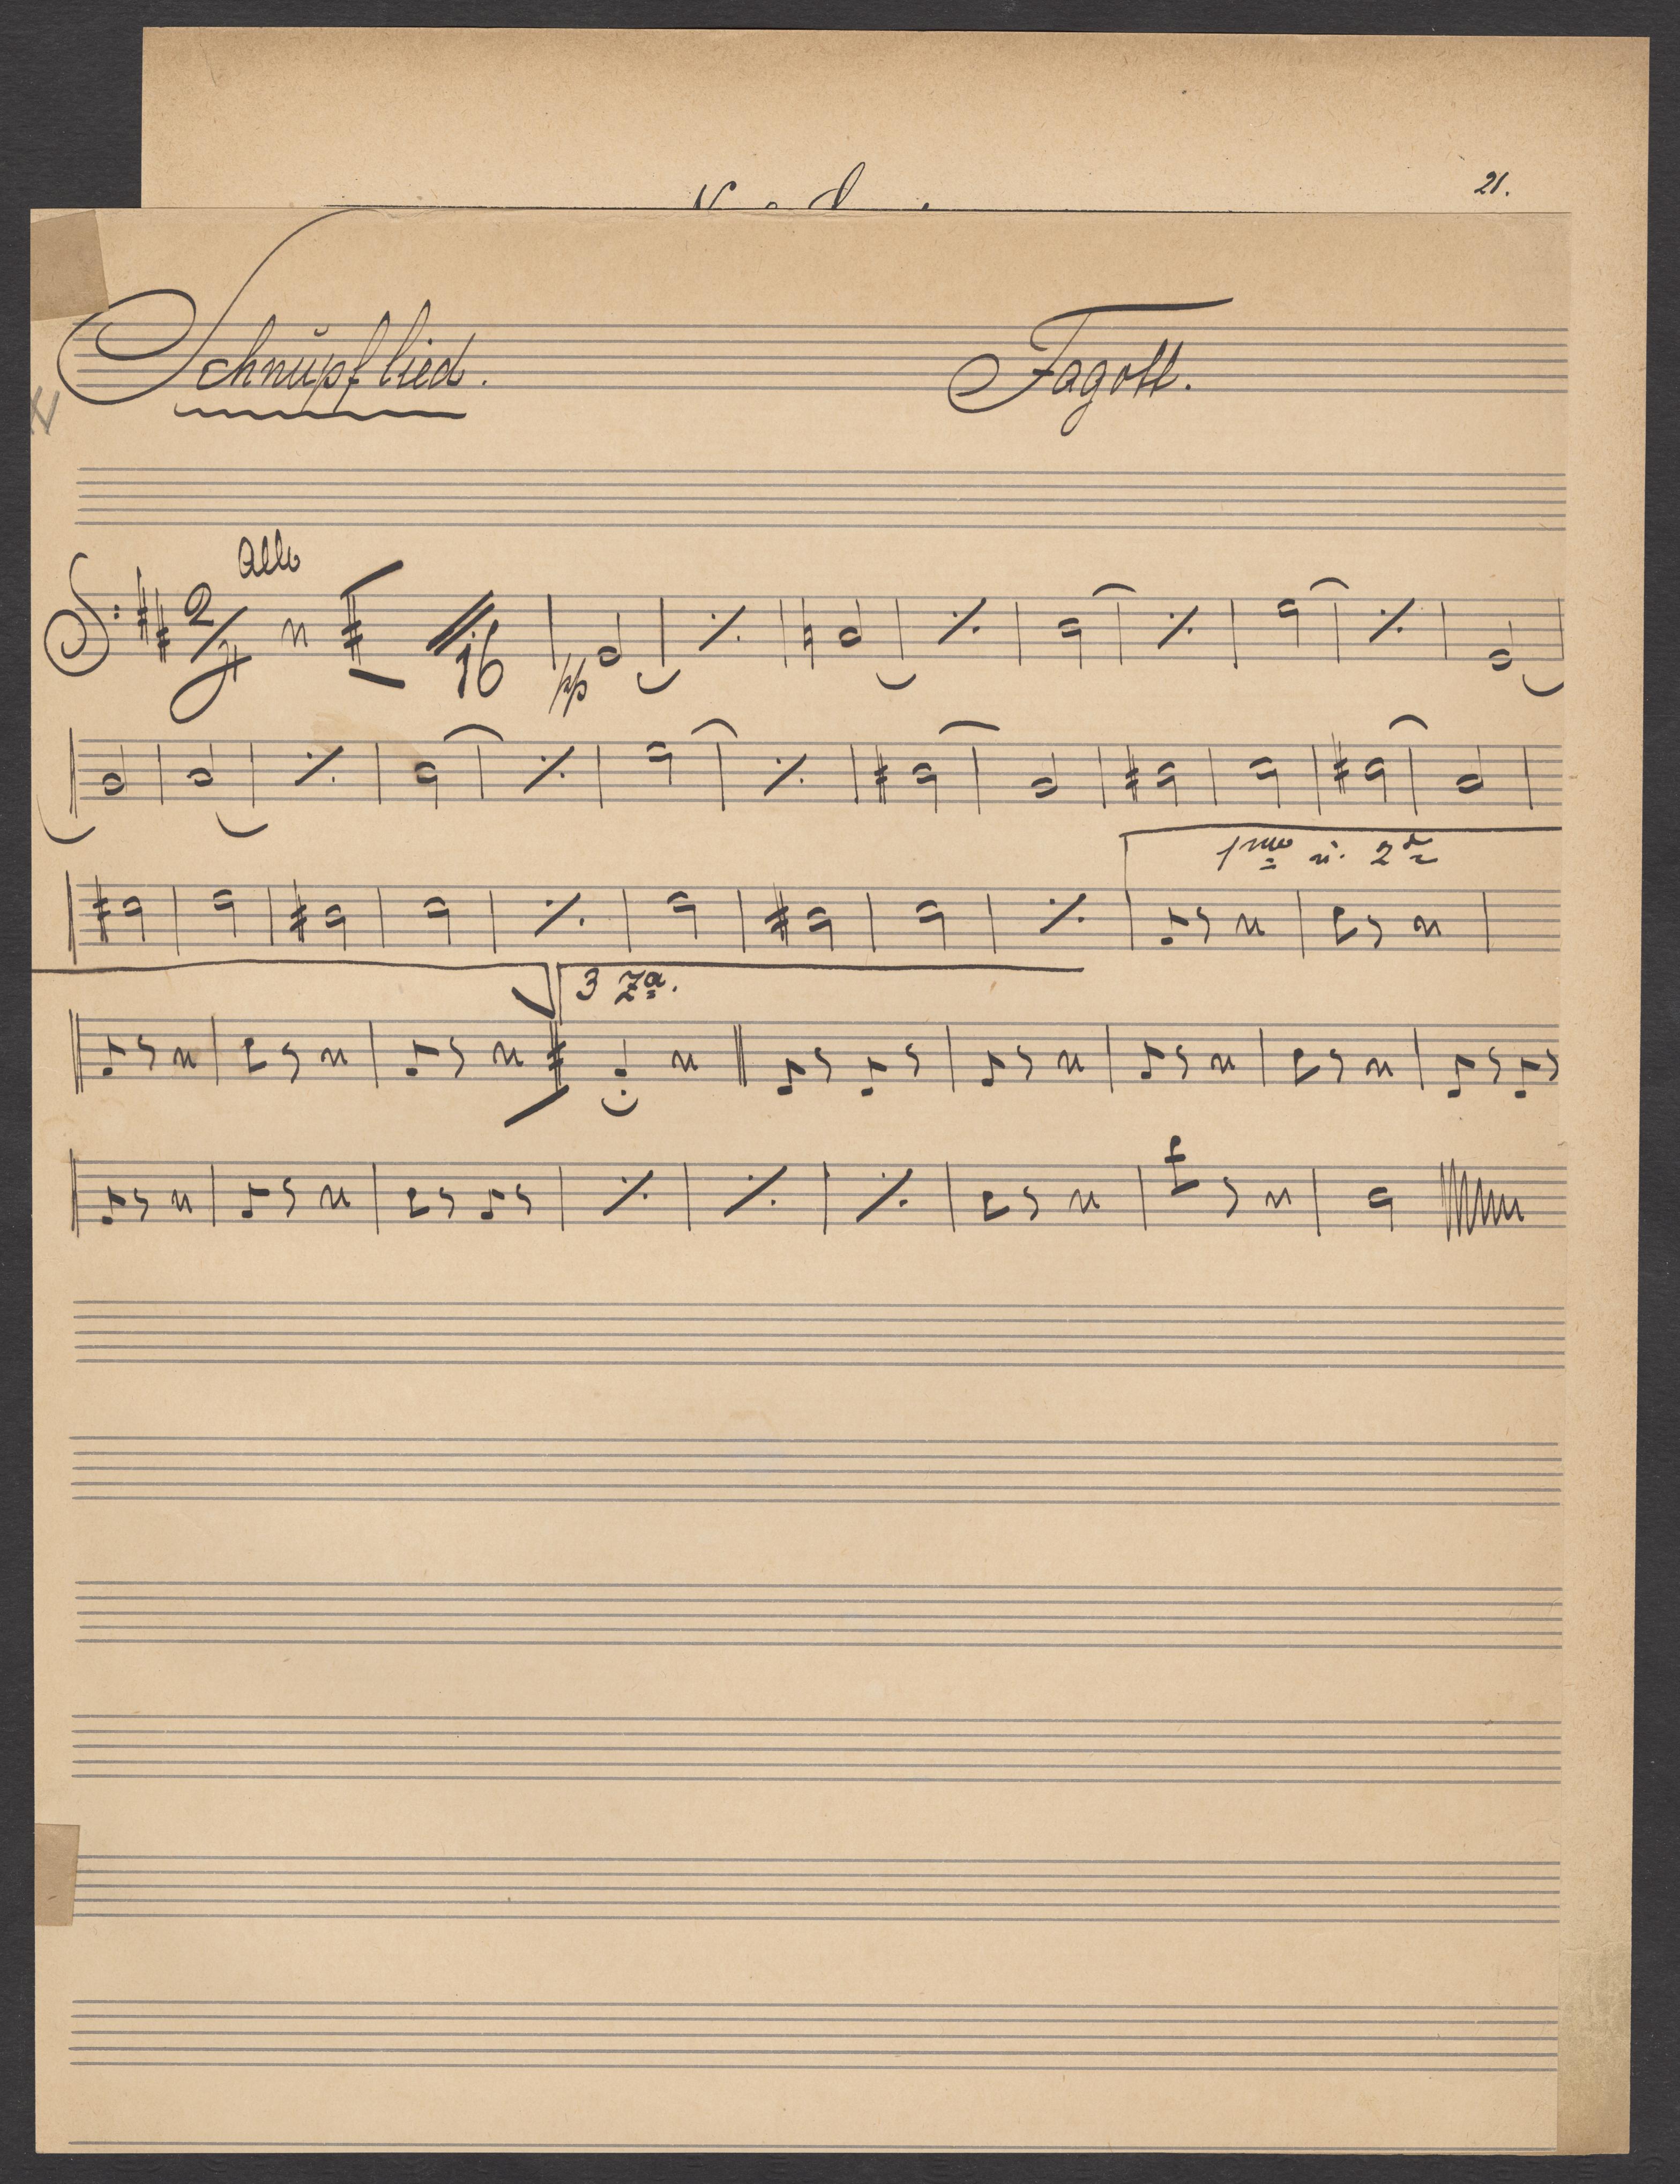 21.
Schnupflied. Fagott.
Allo
2/4
16
pp
1mo u. 2do
3 za.